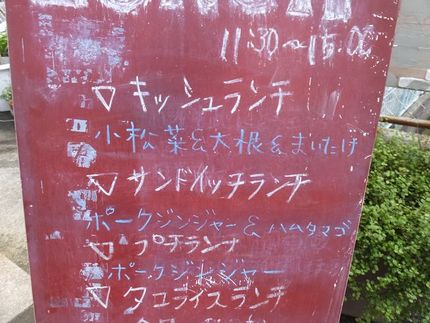 11:30〜15:00
▽キッシュランチ
小松菜&大根&まいたけ
▽サンドイッチランチ
ポークジンジャー&ハムタマゴ
▽プチランチ
ポークジンジャー
▽タコライスランチ